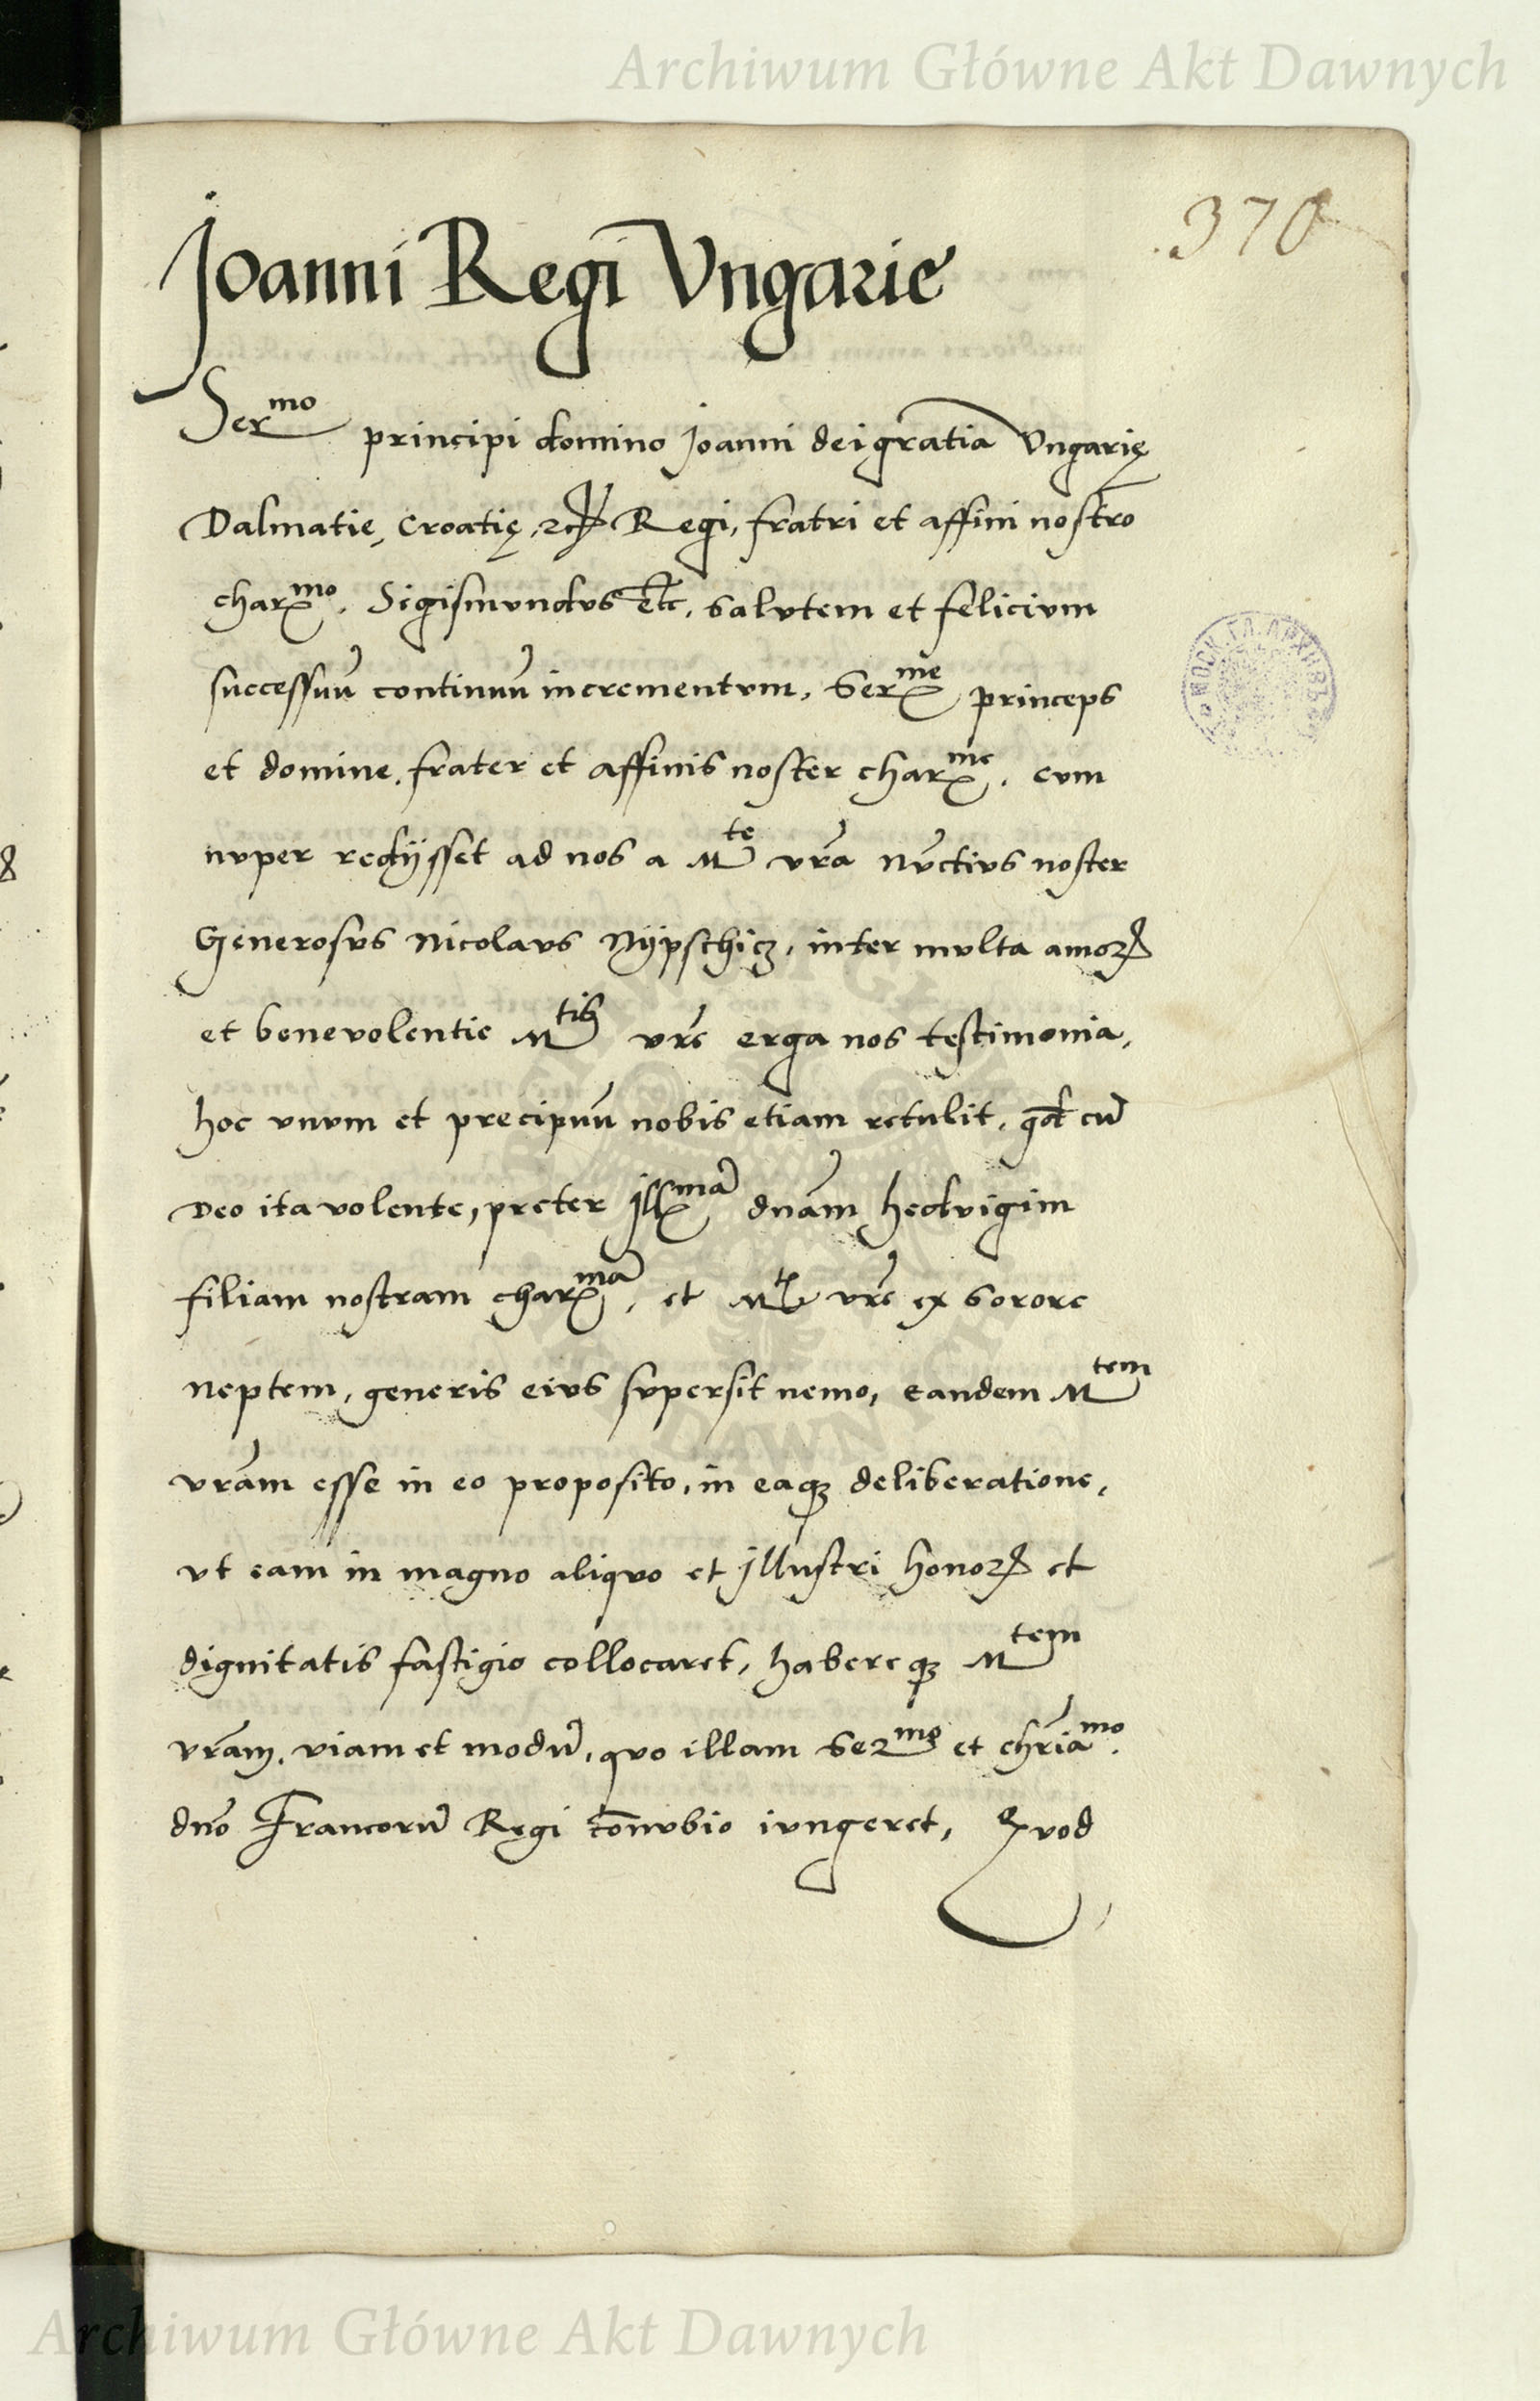 Archiwum Główne Akt Dawnych
370
Joanni Regi Vngarie
Ser^mo principi domino Joanni dei gratia Vngarię
Dalmatię, Croatię, etc Regi, fratri et affini nostro
char^mo. Sigismvndvs etc. salvtem et felicivm
successuū continuū incrementvm, Ser^me princeps
et domine, frater et affinis noster char^me. cvm
nvper redijsset ad nos a M^te vrā nūctivs noster
Generosvs Nicolavs Nypschicz, inter mvlta amoris
et benevolentie M^tis vrē erga nos testimonia,
hoc vnvm et precipuū nobis etiam retulit, qd cū
Deo ita volente, preter Ill^mā dnām hedvigim
filiam nostram char^mā, et M^tis vrē ex sorore
neptem, generis eivs svpersit nemo, eandem M^tem
vrām esse in eo proposito, in eaq deliberatione,
vt eam in magno aliqvo et illustri honoris et
dignitatis fastigio collocaret, habereq M^tem
vrām, viam et modū, qvo illam Ser^mo et chriā^mo.
dnō Francorū Regi cōnvbio ivngeret, Qvod
МОСК. ГЛ. АРХИВЪ
Archiwum Główne Akt Dawnych